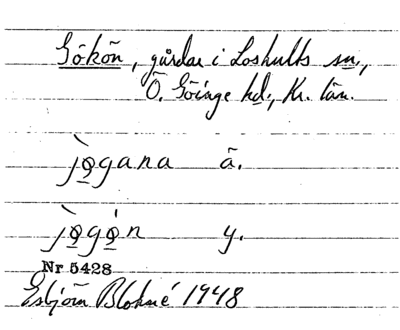 Gökön, gårdar i Loshults sn.,
Ö. Göinge hd., Kr. län.
jògana ä.
jògón y.
Nr 5428
Esbjörn Blohmé 1948